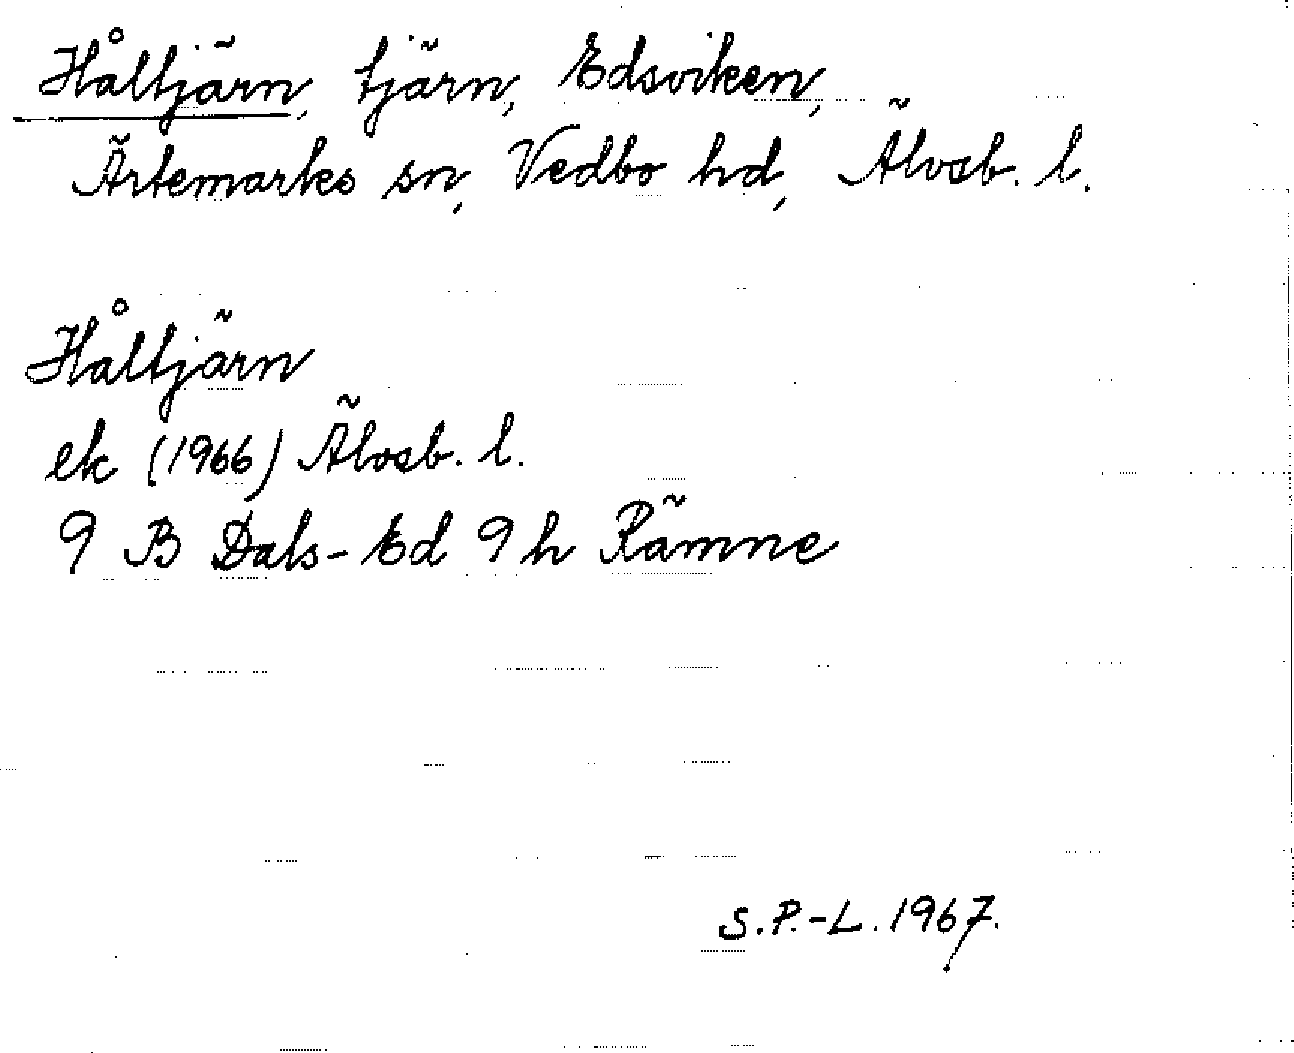 Håltjärn, tjärn, Edsviken,
Ärtemarks sn, Vedbo hd, Älvsb. l.
Håltjärn
ek (1966) Älvsb. l.
9 B Dals-Ed 9 h Rämne
S.P.-L. 1967.